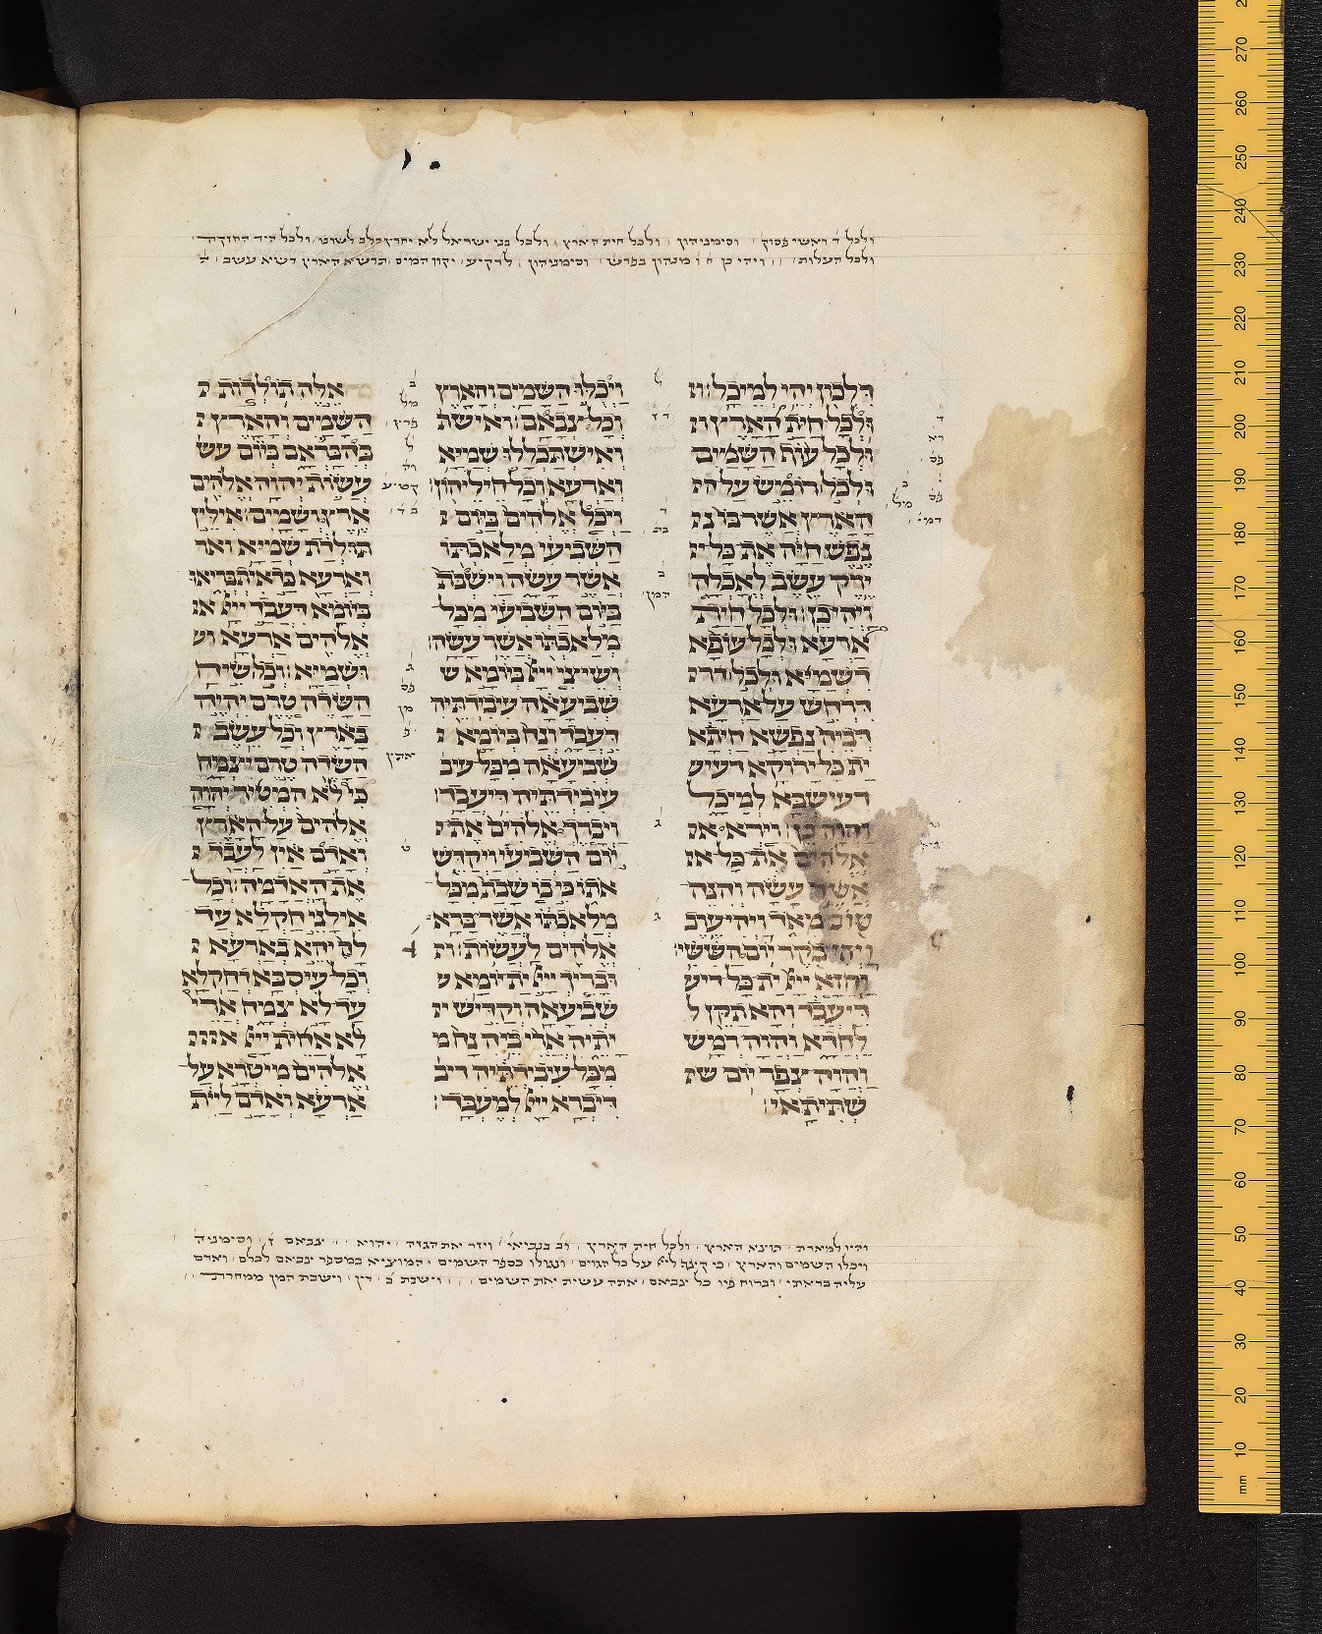 ולכל ד ראשי פסוק וסימניהון ולכל חית הארץ ולכל בני ישראל לא יחרץ כלב לשונו ולכל היד החזקה
ולכל העלות ויהי כן מנהון בפרש וסימניהון לרקיע יקוו המים תדשא הארץ דשיא עשב
דִלְכוֹן יְהֵי לְמֵיכַל׃ וּ
וּלְכָל חַיַּת הָאָרֶץ וּ
וּלְכָל עוֹף הַשָּׁמַיִם
וּלְכֹל רוֹמֵשׂ עַל הָ
הָאָרֶץ אֲשֶׁר בּוֹ נֶ
נֶפֶשׁ חַיָּה אֶת כָּל יֶ
יֶרֶק עֵשֶׂב לְאָכְלָה
וַיְהִי כֵן׃ וּלְכָל חֵיוַת
אַרְעָא וּלְכָל עוֹפָא
דִשְׁמַיָּא וּלְכֹל דִ
דִרְחֵשׁ עַל אַרְעָא
דְבֵיהּ נַפְשָׁא חַיְתָא
יָת כָּל יְרוֹקָא דְעִיש
דְעִישְבָּא לְמֵיכַל
וַהֲוָה כֵן׃ וַיַּרְא א
אֱלֹהִים אֶת כָּל א
אֲשֶׁר עָשָׂה וְהִנֵּה
טוֹב מְאֹד וַיְהִי עֶרֶב
וַיְהִי בֹקֶר יוֹם הַשִּׁשִּׁי׃
וַחֲזָא יְיָ יָת כָּל דִי ע
דִי עֲבַד וְהָא תָקֵן ל
לַחְדָא וַהֲוָה רְמַשׁ
וַהֲוָה צְפַר יוֹם שְׁ
שְׁתִיתָאי׃
וַיְכֻלּוּ הַשָּׁמַיִם וְהָאָרֶץ
וְכָל צְבָאָם׃ וְאִישְׁתַ
וְאִישְׁתַכְלַלוּ שְׁמַיָּא
וְאַרְעָא וְכָל חֵילֵיהוֹן׃
וַיְכַל אֱלֹהִים בַּיּוֹם
הַשְּׁבִיעִי מְלַאכְתּוֹ
אֲשֶׁר עָשָׂה וַיִּשְׁבֹּת
בַּיּוֹם הַשְּׁבִיעִי מִכָּל
מְלַאכְתּוֹ אֲשֶׁר עָשָׂה׃
וְשֵׁיצִי יְיָ בְּיוֹמָא ש
שְׁבִיעָאָה עֲבִידְתֵּיהּ
דַעֲבַד וְנָח בְּיוֹמָא
שְׁבִיעָאָה מִכָּל עִיב
עִיבִידְתֵּיהּ דִיעֲבַד׃
וַיְבָרֶךְ אֱלֹהִים אֶת
יוֹם הַשְּׁבִיעִי וַיְקַדֵּשׁ
אֹתוֹ כִּי בוֹ שָׁבַת מִכָּל
מְלַאכְתּוֹ אֲשֶׁר בָּרָא
אֱלֹהִים לַעֲשׂוֹת׃ וּ
וּבָרִיךְ יְיָ יָת יוֹמָא ש
שְׁבִיעָאָה וְקַדִּישׁ י
יָתֵיהּ אֲרֵי בֵיהּ נָח מ
מִכָּל עִיבִידְתֵּיהּ דִיב
דִיבְרָא יְיָ לְמֶעְבַּד׃
אֵלֶּה תוֹלְדוֹת
הַשָּׁמַיִם וְהָאָרֶץ
בְּהִבָּרְאָם בְּיוֹם עש
עֲשׂוֹת יְהוָה אֱלֹהִים
אֶרֶץ וְשָׁמָיִם׃ אִילֵּין
תּוּלְדַת שְׁמַיָּא וְאר
וְאַרְעָא כַּד אִתְבְּרִיאוּ
בְּיוֹמָא דַעֲבַד יְיָ א
אֱלֹהִים אַרְעָא וש
וּשְׁמַיָּא׃ וְכֹל שִׂיחַ
הַשָּׂדֶה טֶרֶם יִהְיֶה
בָאָרֶץ וְכָל עֵשֶׂב
הַשָּׂדֶה טֶרֶם יִצְמָח
כִּי לֹא הִמְטִיר יְהוָה
אֱלֹהִים עַל הָאָרֶץ
וְאָדָם אַיִן לַעֲבֹד
אֶת הָאֲדָמָה׃ וְכֹל
אִילָנֵי חַקְלָא עַד
לָא יְהָא בְאַרְעָא
וְכָל עִיסְבָּא דְחַקְלָא
עַד לָא יִצְמַח אֲרֵי
לָא אַחֵית יְיָ א
אֱלֹהִים מִיטְרָא עַל
אַרְעָא וְאָדָם לַיִת
והיו למארת תוצא הארץ ולכל חית הארץ וב בנביאי ויזר את הגזה יהוא צבאם ד וסימניה
ויכלו השמים והארץ כי קצף לייי על כל הגוים ונגולו כספר השמים המוציא במספר צבאם לכלם ואדם
עליה בראתי וברוח פיו כל צבאם אתה עשית את השמים וישבת ב דין וישבת המן ממחרת